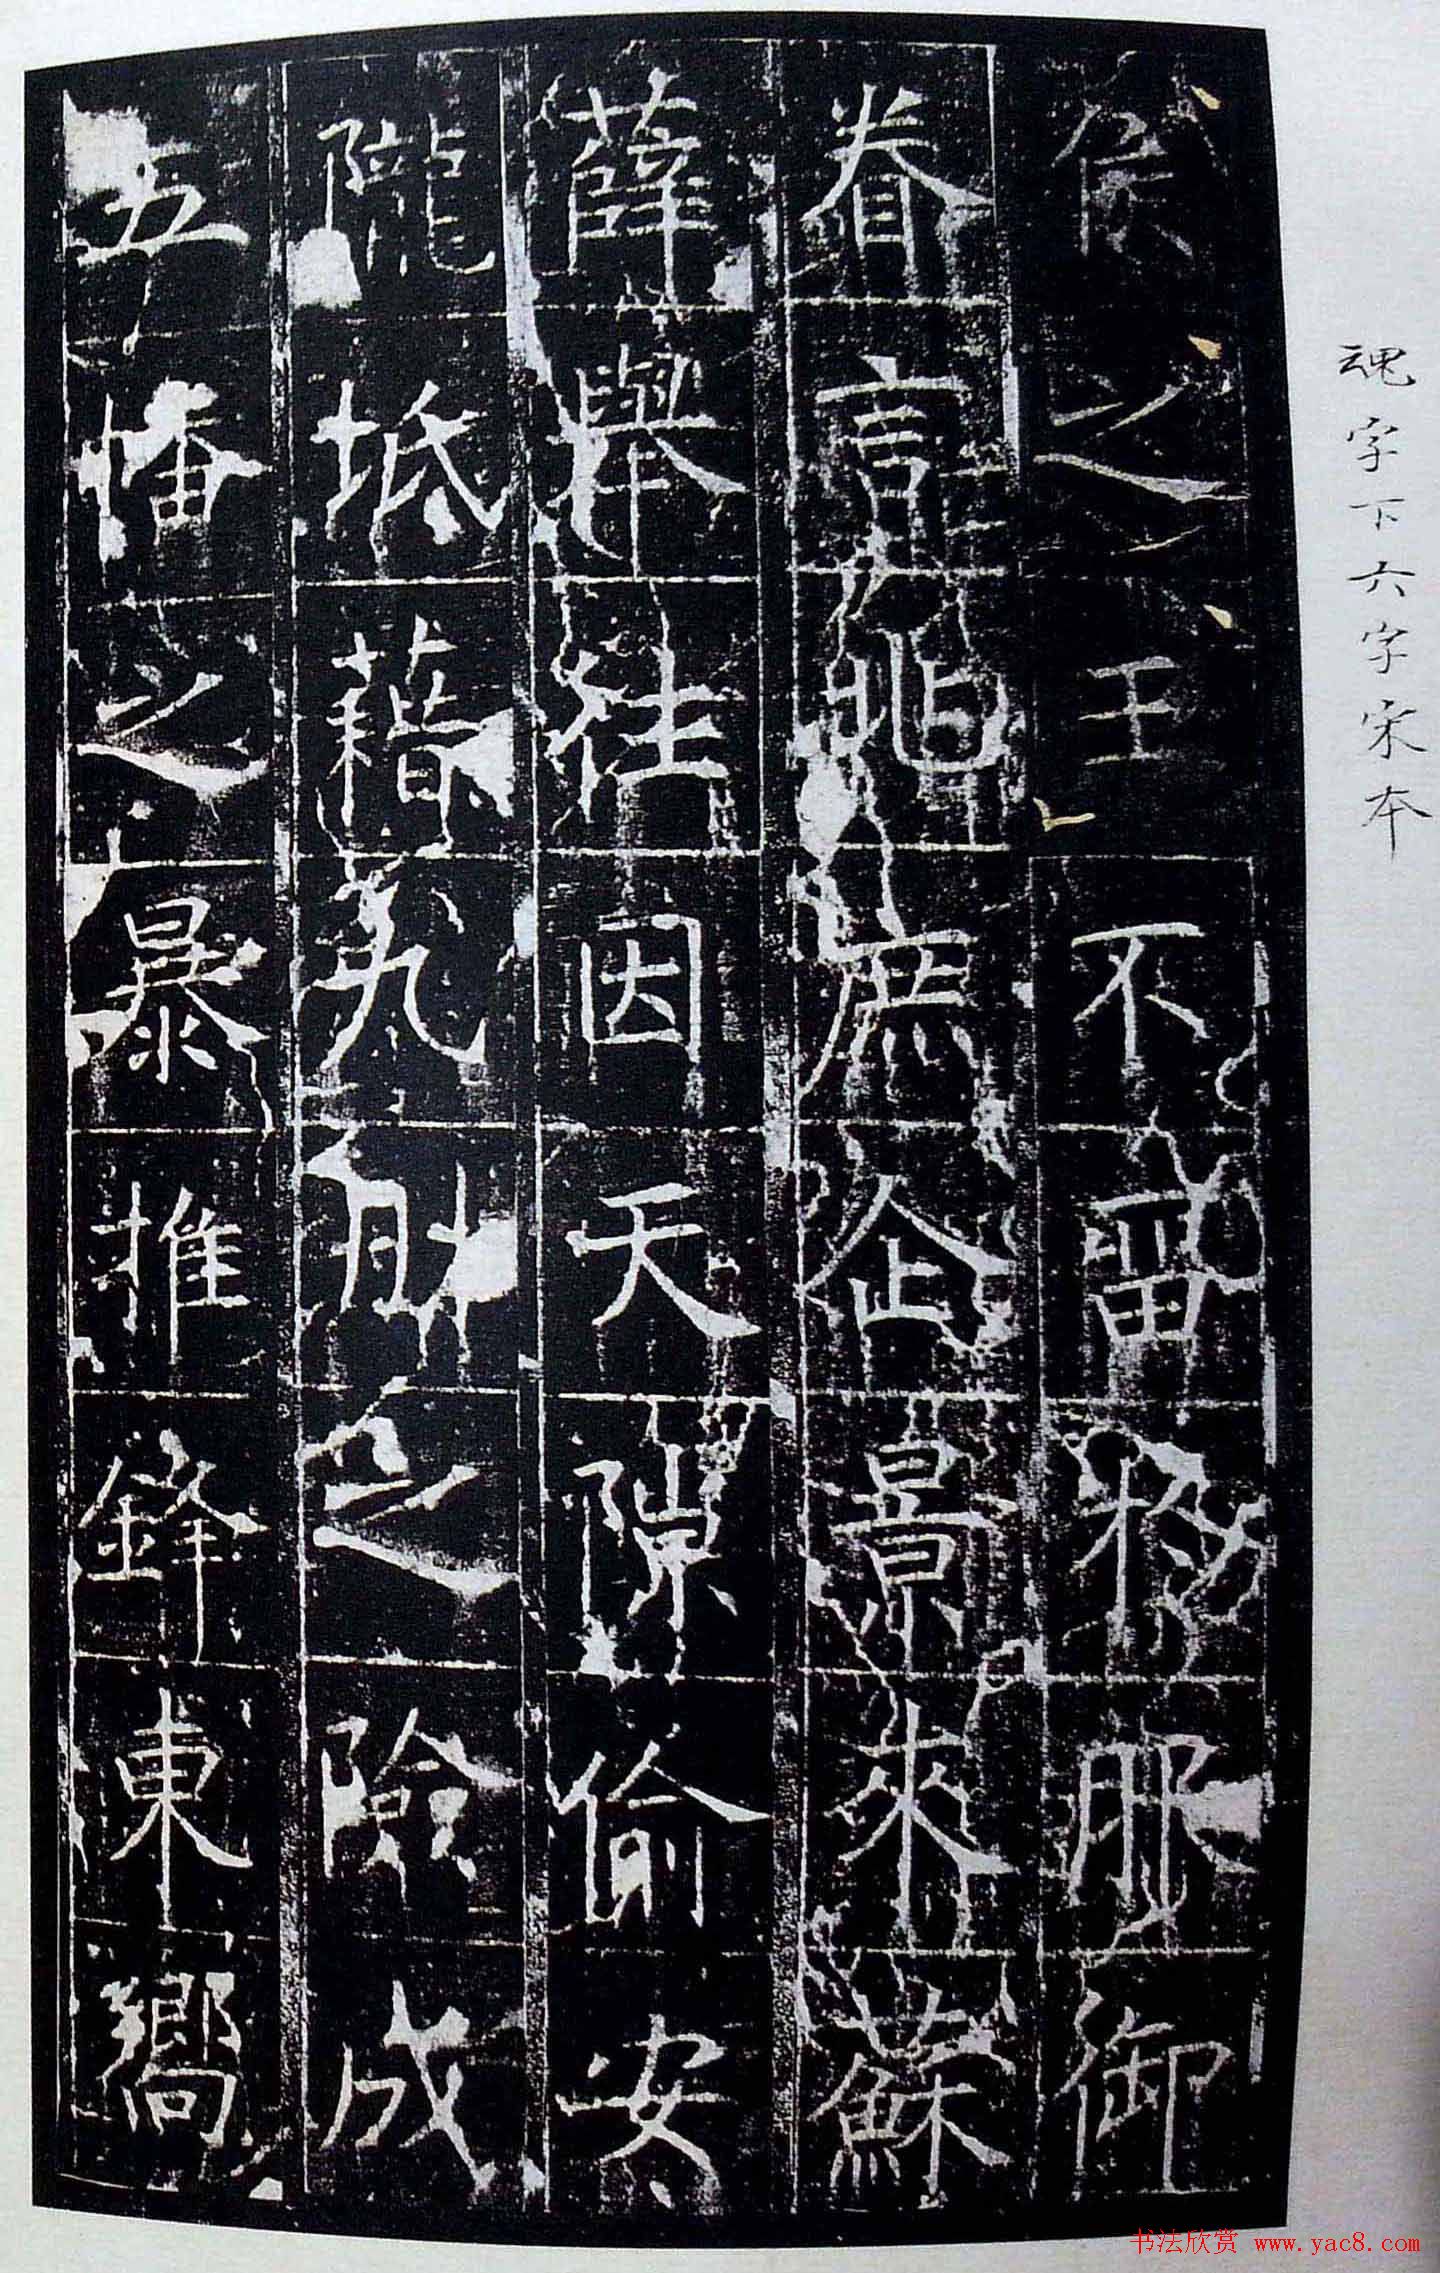 魂字下六字宋本
侯之王不留移服御
眷言邠庶企景來蘇
薛舉往因天隙偷安
隴坻藉九射之險成
五幡之暴推鋒東嚮
书法欣赏 www.yac8.com